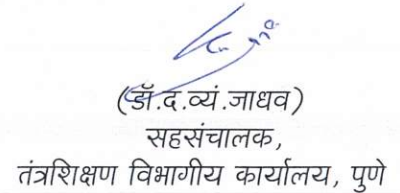 (डॉ.द.व्यं.जाधव)
सहसंचालक,
तंत्रशिक्षण विभागीय कार्यालय, पुणे